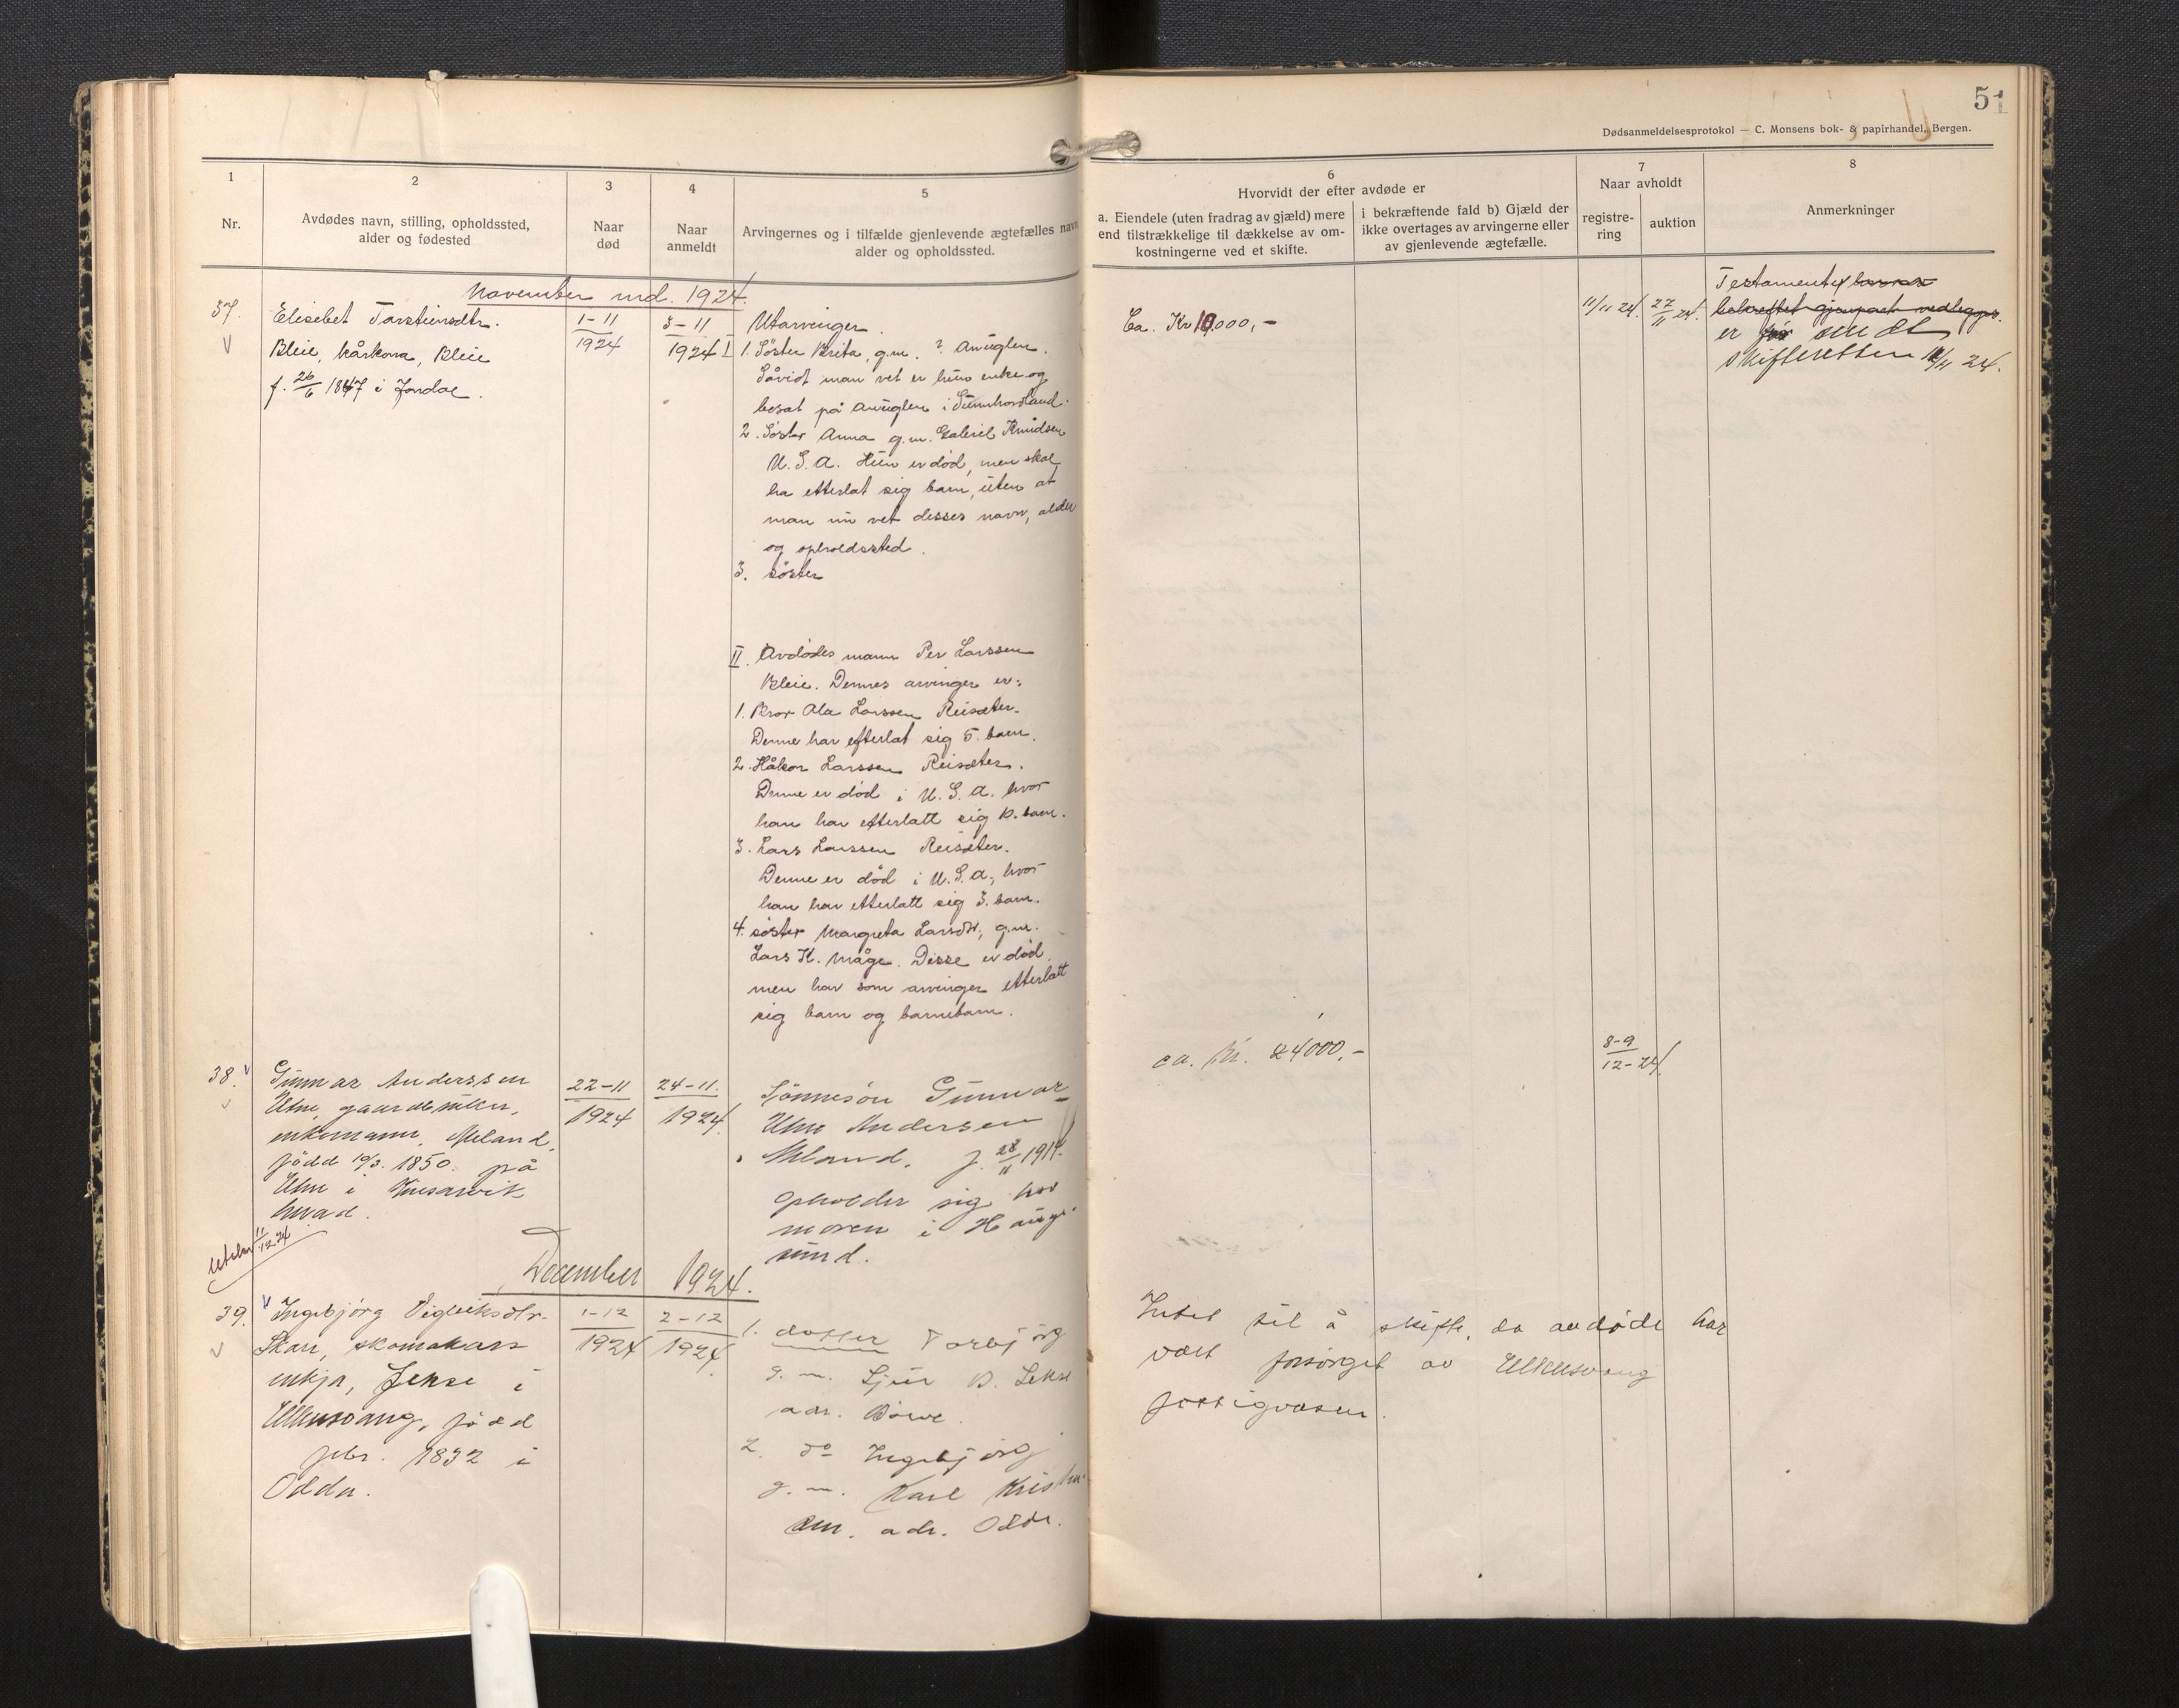 51
Dødsanmeldelsesprotokol — C. Monsens bok- & papirhandel, Bergen.
1
Nr.
2
Avdødes navn, stilling, opholdssted,
alder og fødested
3
Naar
død
4
Naar
anmeldt
5
Arvingernes og i tilfælde gjenlevende ægtefælles navn
alder og opholdssted.
6
Hvorvidt der efter avdøde er
a. Eiendele (uten fradrag av gjæld) mere
end tilstrækkelige til dækkelse av om-
kostningerne ved et skifte.
i bekræftende fald b) Gjæld der
ikke overtages av arvingerne eller
av gjenlevende ægtefælle.
7
Naar avholdt
registre-
ring
auktion
8
Anmerkninger
November md. 1924.
37.
Elisebet Torsteinsdtr.
Bleie, kårkona, Bleie
f. 26/6 1847 i Jondal.
1-11
1924
3-11
1924
Utarvinger.
I 1. Søster Brita, g.m. ? Anuglen.
Såvidt man vet er hun enke og
bosat på Anuglen i Sunnhordland.
2. Søster Anna g.m. Gabriel Knudsen
U.S.A. Hun er død, men skal
ha etterlat sig barn, uten at
man nu vet disses navn, alder
og opholdssted.
3. søster
II. Avdødes mann Per Larssen
Bleie. Dennes arvinger er:
1. Bror Ola Larssen Reisæter.
Denne har efterlat sig 5. barn.
2. Håkon Larssen Reisæter.
Denne er død i U.S.A. hvor
han har efterlatt sig 10. barn.
3. Lars Larssen Reisæter.
Denne er død i U.S.A., hvor
han har etterlatt sig 3. barn.
4. søster Margreta Larsdtr, g.m.
Lars K. Måge. Disse er død,
men har som arvinger etterlatt
sig barn og barnebarn.
Ca. Kr 10000,-
11/11 24.
27/11 24.
Testamente
bekreftet gjenpart vedlegges.
er sendt
skifteretten 12/11 24.
38.
Gunnar Anderssen
Utne, gaardbruker,
enkemann, Meland,
født 10/3. 1850 på
Utne i Kinsarvik
herad.
22-11
1924
24-11.
1924.
Sønnesøn Gunnar
Utne Andersen
Meland. f. 28/11 1914.
opholder sig hos
moren i Hauge-
sund.
ca. kr. 24000,-
8-9
12-24.
11/12 24
December 1924.
39.
Ingebjørg Vigleiksdtr.
Skare, skomakars
enkja, Jekse i
Ullensvang, født
febr. 1832 i
Odda.
1-12
1924
2-12
1924.
1. datter Torbjørg
g.m. Sjur B. Lekse
adr. Børve.
2. do Ingebjørg
g.m. Karl Kristen-
sen. adr. Odda.
Intet til å skifte, da avdøde har
vært forsørget av Ullensvang
fattigvæsen.